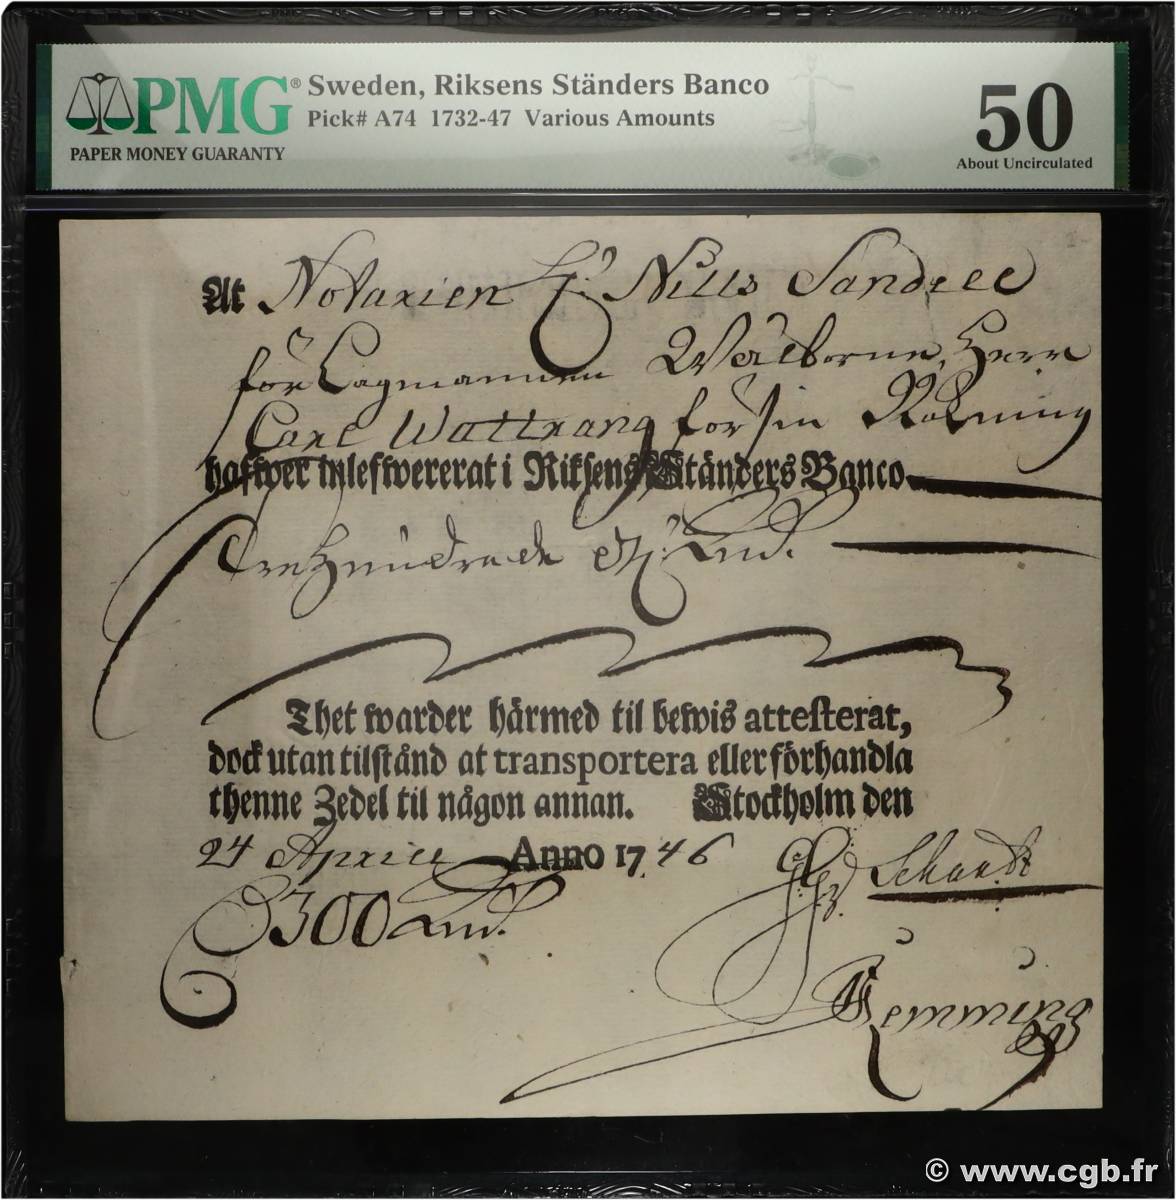 PMG® Sweden, Riksens Ständers Banco
Pick# A74 1732-47 Various Amounts
PAPER MONEY GUARANTY
50
About Uncirculated
At Notarien Nills Sandell
för Lagmannen Wälborne Herr
Carl Wattrang för sin Räkning
hafwer inlefwererat i Riksens Ständers Banco
Trehundrade
Thet warder härmed til bewis attesterat,
dock utan tilstånd at transportera eller förhandla
thenne Zedel til någon annan. Stockholm den
24 Aprill Anno 1746
300
Schardt
Flemming
© www.cgb.fr